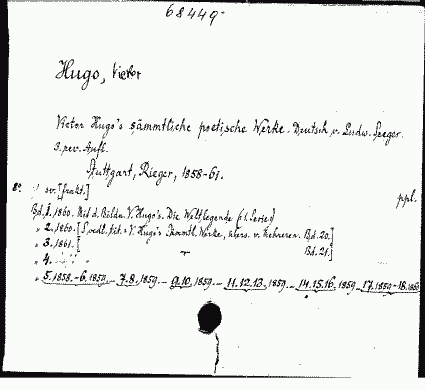 68449
Hugo, Victor
Victor Hugo's sämmtliche poetische Werke. Deutsch v. Ludw. Seeger.
3. rev. Aufl.
Stuttgart, Rieger, 1858-61.
8° [frakt.] ppl.
Bd. 1. 1860. Mit d. Bildn. V. Hugo's. Die Weltlegende
" 2. 1860. [V. Hugo's Sämmtl. Werke, übers. v. Mehreren. Bd. 20.]
" 3. 1861. [ " Bd. 21.]
" 4.
" 5. 1858. - 6. 1859. - 7.8. 1859. - 9.10. 1859. - 11.12.13. 1859. - 14.15.16. 1859. - 17. 1859 - 18. 1860